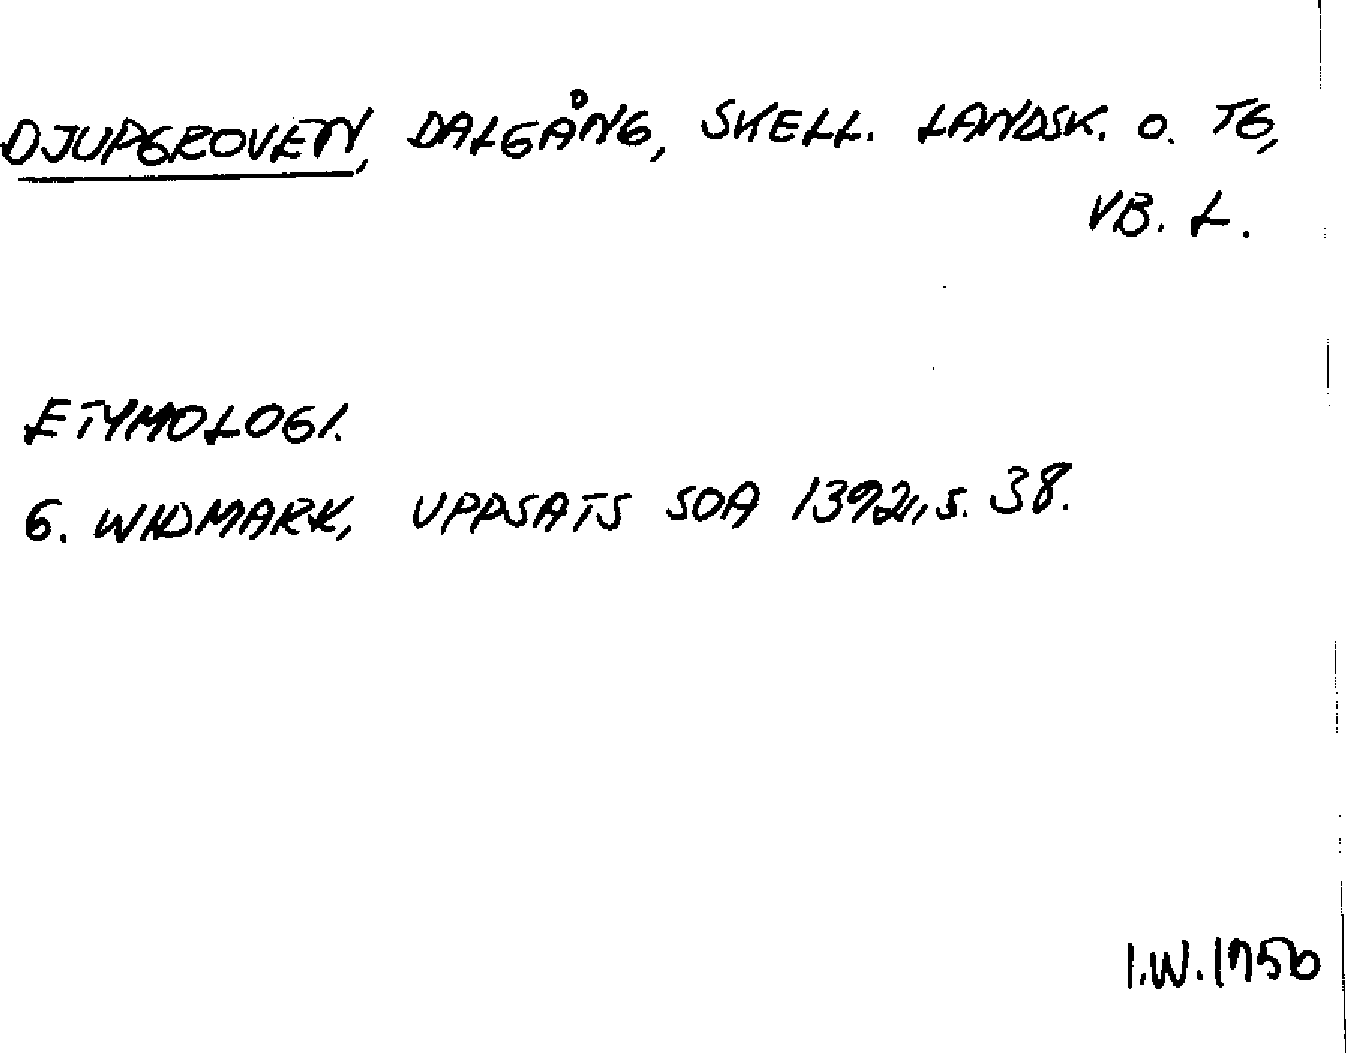 DJUPGROVEN, DALGÅNG, SKELL. LANDSK. O. TG,
VB. L.
ETYMOLOGI.
G. WIDMARK, UPPSATS SOA 1392, S. 38.
I.W. 1956